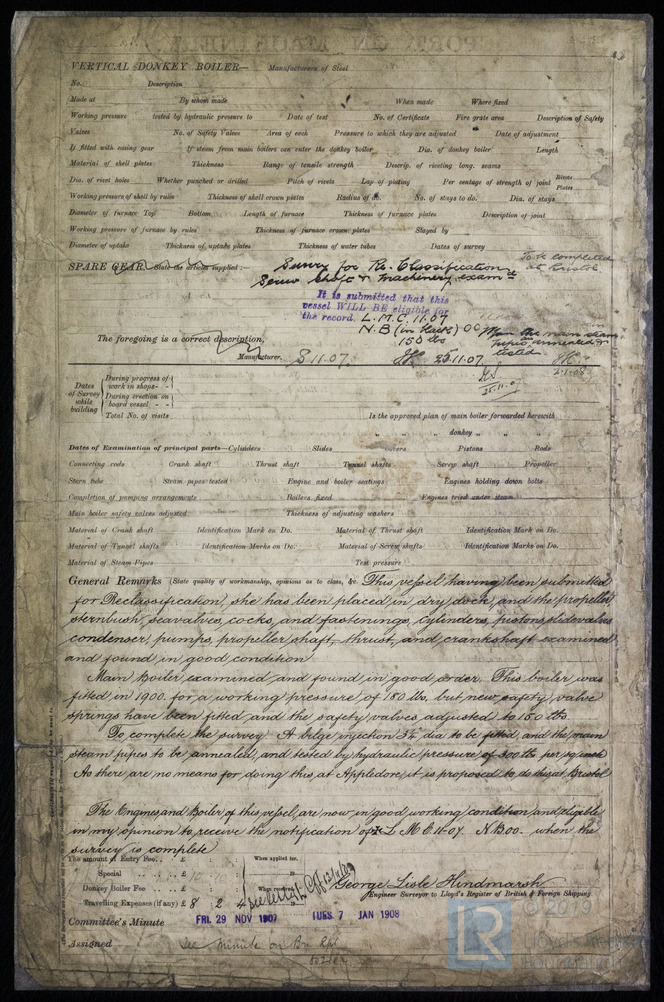 VERTICAL DONKEY BOILER— Manufacturers of Steel
No. Description
Made at By whom made When made Where fixed
Working pressure tested by hydraulic pressure to Date of test No. of Certificate Fire grate area Description of Safety
Valves No. of Safety Valves Area of each Pressure to which they are adjusted Date of adjustment
If fitted with easing gear If steam from main boilers can enter the donkey boiler Dia. of donkey boiler Length
Material of shell plates Thickness Range of tensile strength Descrip. of riveting long. seams
Dia. of rivet holes Whether punched or drilled Pitch of rivets Lap of plating Per centage of strength of joint Rivets Plates
Working pressure of shell by rules Thickness of shell crown plates Radius of do. No. of stays to do. Dia. of stays
Diameter of furnace Top Bottom Length of furnace Thickness of furnace plates Description of joint
Working pressure of furnace by rules Thickness of furnace crown plates Stayed by
Diameter of uptake Thickness of uptake plates Thickness of water tubes Dates of survey
To be completed at Bristol
SPARE GEAR. State the articles supplied:— Survey for Re. Classification
Screw Shaft & machinery exam
It is submitted that this
vessel WILL BE eligible for
the record. L.M.C. 11.07
N.B (in black) 00
150 lbs
When the main steam
pipes annealed &
tested.
The foregoing is a correct description,
Manufacturer. 11.07 11.07
2.1.08
25.11.07
Dates of Survey while building
During progress of work in shops - -
During erection on board vessel - -
Total No. of visits
Is the approved plan of main boiler forwarded herewith
" " donkey " " "
Dates of Examination of principal parts—Cylinders Slides Covers Pistons Rods
Connecting rods Crank shaft Thrust shaft Tunnel shafts Screw shaft Propeller
Stern tube Steam pipes tested Engine and boiler seatings Engines holding down bolts
Completion of pumping arrangements Boilers fixed Engines tried under steam
Main boiler safety valves adjusted Thickness of adjusting washers
Material of Crank shaft Identification Mark on Do. Material of Thrust shaft Identification Mark on Do.
Material of Tunnel shafts Identification Marks on Do. Material of Screw shafts Identification Marks on Do.
Material of Steam Pipes Test pressure
General Remarks (State quality of workmanship, opinions as to class, &c. This vessel having been submitted
for Reclassification, she has been placed in dry dock, and the propeller
sternbush, seavalves, cocks, and fastenings, cylinders, pistons, slidevalves
condenser, pumps, propeller shaft, thrust, and crankshaft examined
and found in good condition
Main Boiler examined and found in good order. This boiler was
fitted in 1900. for a working pressure of 180 lbs, but new safety valve
springs have been fitted and the safety valves adjusted to 150 lbs
To complete the survey: A bilge injection 3¼ dia to be fitted, and the main
steam pipes to be annealed, and tested by hydraulic pressure of 300 lbs per sq inch
As there are no means for doing this at Appledore, it is proposed to do this at Bristol
The Engines and Boiler of this vessel, are now in good working condition and eligible
in my opinion to receive the notification of L M C 11-07. N.B 00. when the
survey is complete
The amount of Entry Fee. . £ : : When applied for,
Special . . £
Donkey Boiler Fee . . £ When received,
Travelling Expenses (if any) £ 8 . 2 . 4
George Lisle Hindmarsh
Engineer Surveyor to Lloyd's Register of British & Foreign Shipping.
Committee's Minute FRI. 29 NOV 1907 TUES. 7 JAN 1908
Assigned See Minute on Bri Rpt
LR